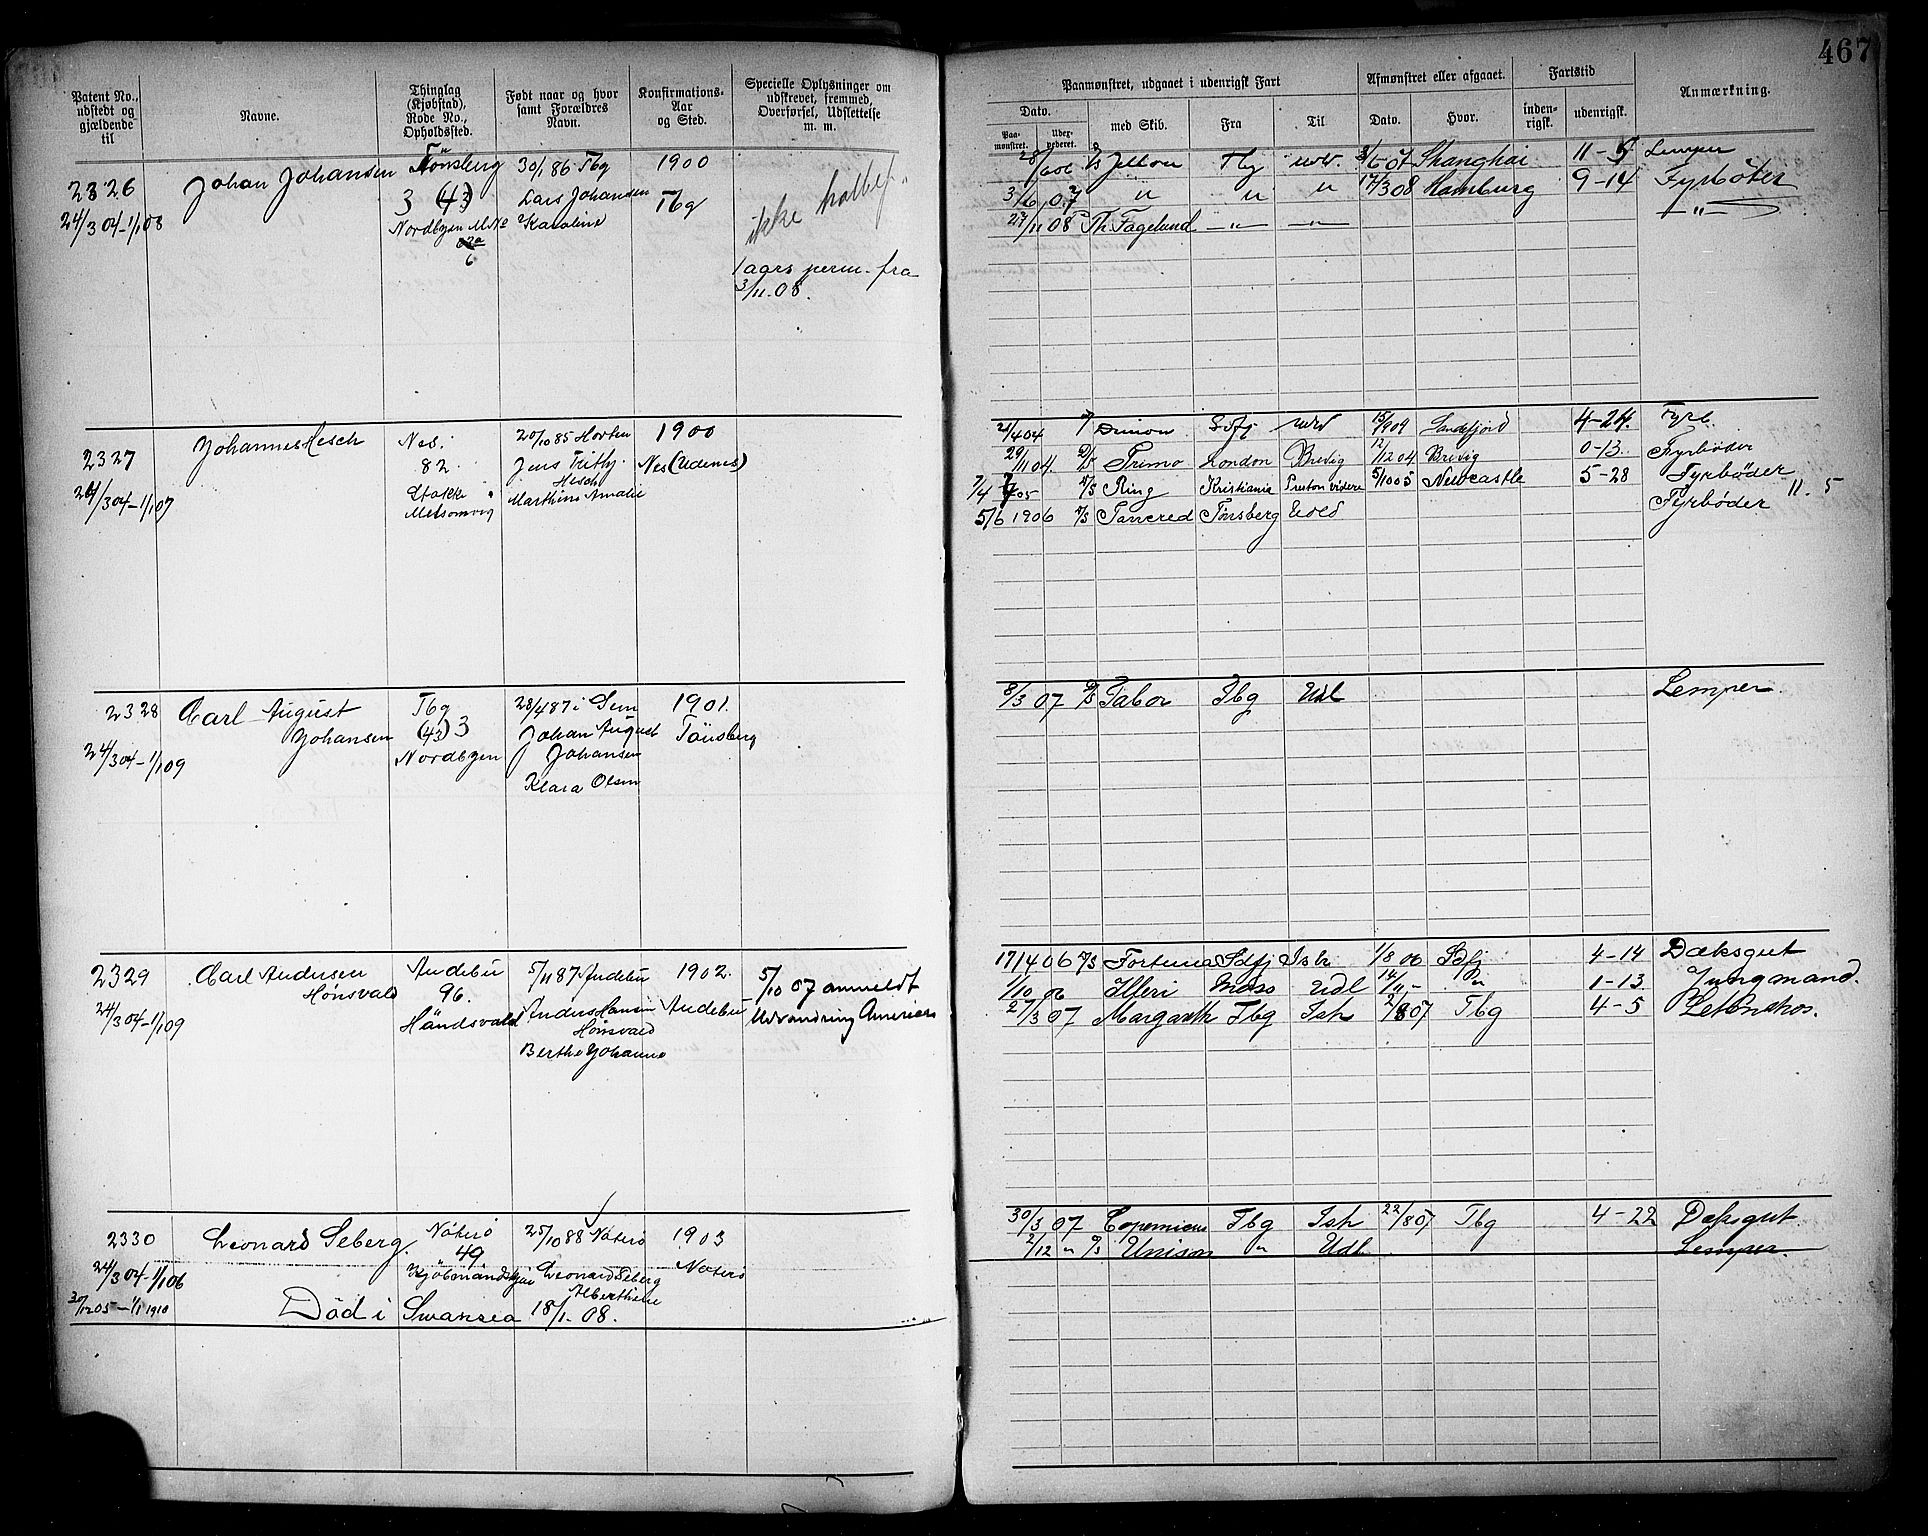 467
Patent No., udstedt og gjældende til
Navne.
Thinglag (Kjøbstad), Rode No., Opholdssted.
Født naar og hvor samt Forældres Navn.
Konfirmations-Aar og Sted.
Specielle Oplysninger om udskrevet, fremmed, Overførsel, Udslettelse m. m.
Paamønstret, udgaaet i udenrigsk Fart
Afmønstret eller afgaaet.
Fartstid
Anmærkning.
Dato.
Paa-mønstret.
med Skib.
Fra
Til
Dato.
Hvor.
inden-rigsk.
udenrigsk.
2326
24/3 04-1/1 08
Johan Johansen
Tönsberg
3 (43)
Nordbyen
30/1 86 Tbg
Lars Johansen
Karoline
1900
Tbg
ikke
1 aars perm. fra
3/11.08.
28/6 06 Jellon Tbg udl. 3/6-07 Shanghai 11-5 Lemper
3/6 07 " " " 17/3 08 Hamburg 9-14 Fyrböter
27/11 08 Th. Fagelund -"- -"- -"-
2327
24/3 04-1/1 07
Johannes Hesch
Nes.
82.
Stokke
Melsomvig
20/10 85 Horten
Jens Fritz
Hesch
Marthine Amalie
1900
Nes (Udenes)
2/4 04 Dunon Sdfj udl 15/9 04 Sandefjord 4-24. Fyrb.
29/11 04. Primo London Brevig 12/12 04 Brevig 0-13. Fyrbøder
7/4 05 Ring Kristiania Preston videre 5/10 05 Newcastle 5-28 Fyrbøder 11. 5
5/6 1906 Tancred Tønsberg Udld Fyrbøder
2328
24/3 04-1/1 09
Carl August
Johansen
Tbg
(43) 3
Nordbyen
28/4 87 i Sem
Johan August
Johansen
Klara Olsen
1901.
Tönsberg
8/3 07 Tabor Tbg Udl Lemper.
2329
24/3 04-1/1 09
Carl Andersen
Hönsvald
Andebu
96.
Håndsvald
5/11 87 Andebu
Anders Hansen
Hönsvald
Berthe Johanne
1902.
Andebu
5/10 07 anmeldt
Udvandring Amerika
17/4 06 Fortuna Sdfj Ish 1/8 06 Sdfj 4-14 Dæksgut
1/10 06 Ilferi Moss Udl 14/11 - " 1-13. Jungmand.
27/3 07 Margareth Tbg Ish 2/8 07 Tbg 4-5 Letönskos.
2330
24/3 04-1/1 06
30/12 05-1/1 1910
Leonard Seberg.
Nöterö
49.
25/10 88 Nöterö
Leonard Seberg
Alberthine
1903
Nöterö
Död i Swansea 18/1. 08.
30/3 07 Copernicus Tbg Ish 22/8 07 Tbg 4-22 Dæksgut.
2/12 " Unison " Udl. Lemper.